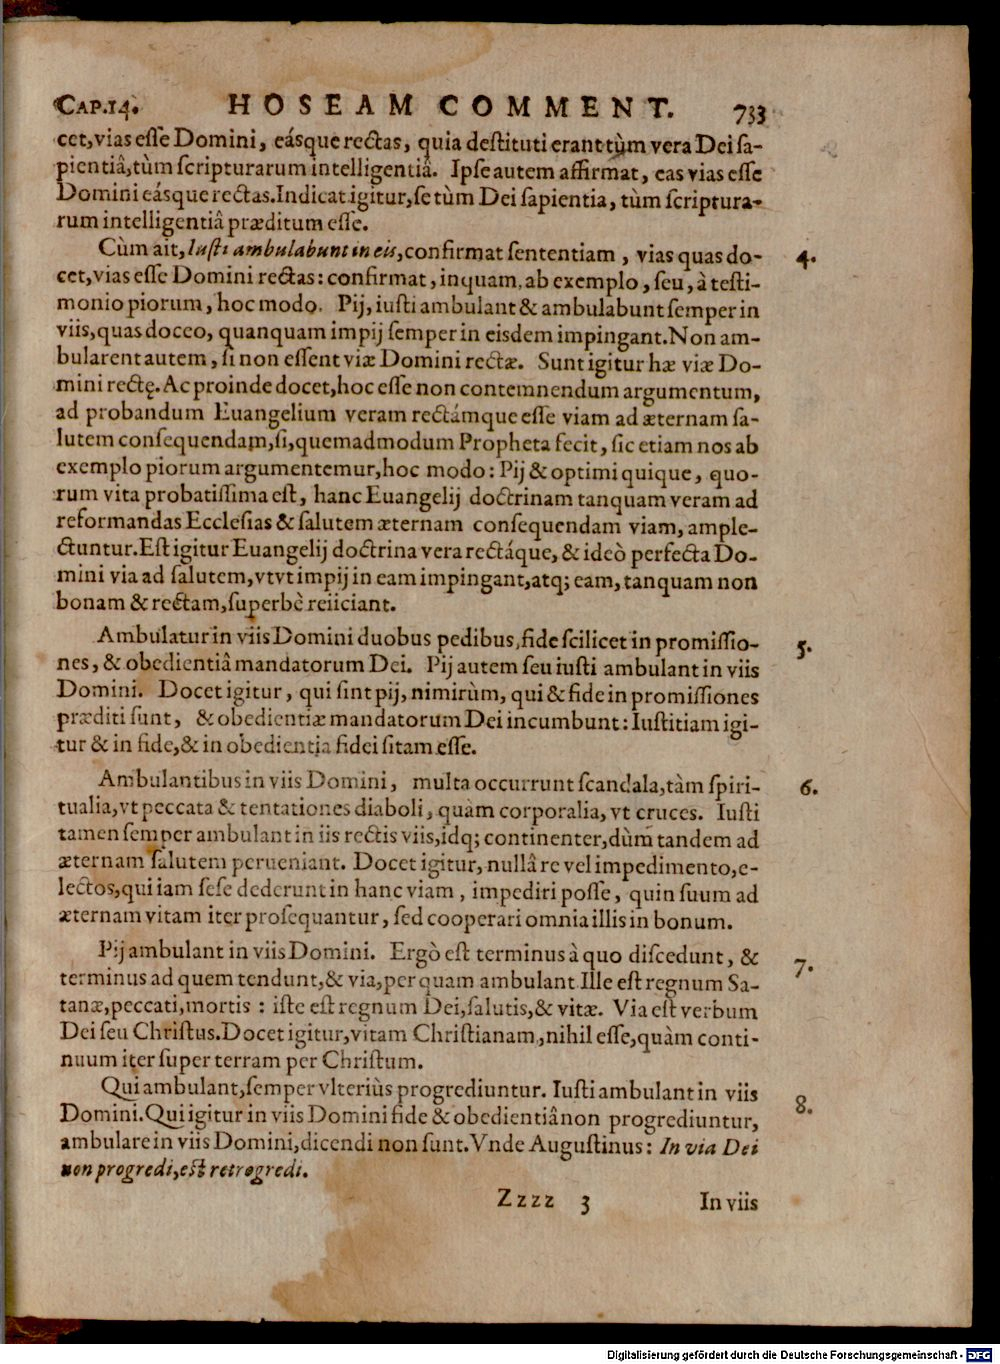 CAP.14. HOSEAM COMMENT. 733
cet, vias esse Domini, eásque rectas, quia destituti erant tùm vera Dei sa-
pientiâ, tùm scripturarum intelligentiâ. Ipse autem affirmat, eas vias esse
Domini eásque rectas. Indicat igitur, se tùm Dei sapientia, tùm scriptura-
rum intelligentiâ præditum esse.
Cùm ait, Iusti ambulabunt in eis, confirmat sententiam, vias quas do- 4.
cet, vias esse Domini rectas: confirmat, inquam, ab exemplo, seu, à testi-
monio piorum, hoc modo. Pij, iusti ambulant & ambulabunt semper in
viis, quas doceo, quanquam impij semper in eisdem impingant. Non am-
bularent autem, si non essent viæ Domini rectæ. Sunt igitur hæ viæ Do-
mini rectę. Ac proinde docet, hoc esse non contemnendum argumentum,
ad probandum Euangelium veram rectámque esse viam ad æternam sa-
lutem consequendam, si, quemadmodum Propheta fecit, sic etiam nos ab
exemplo piorum argumentemur, hoc modo: Pij & optimi quique, quo-
rum vita probatissima est, hanc Euangelij doctrinam tanquam veram ad
reformandas Ecclesias & salutem æternam consequendam viam, ample-
ctuntur. Est igitur Euangelij doctrina vera rectáque, & ideò perfecta Do-
mini via ad salutem, vtvt impij in eam impingant, atq; eam, tanquam non
bonam & rectam, superbè reiiciant.
Ambulatur in viis Domini duobus pedibus, fide scilicet in promissio- 5.
nes, & obedientiâ mandatorum Dei. Pij autem seu iusti ambulant in viis
Domini. Docet igitur, qui sint pij, nimirùm, qui & fide in promissiones
præditi sunt, & obedientiæ mandatorum Dei incumbunt: Iustitiam igi-
tur & in fide, & in obedientia fidei sitam esse.
Ambulantibus in viis Domini, multa occurrunt scandala, tàm spiri- 6.
tualia, vt peccata & tentationes diaboli, quàm corporalia, vt cruces. Iusti
tamen semper ambulant in iis rectis viis, idq; continenter, dùm tandem ad
æternam salutem perueniant. Docet igitur, nullâ re vel impedimento, e-
lectos, qui iam sese dederunt in hanc viam, impediri posse, quin suum ad
æternam vitam iter prosequantur, sed cooperari omnia illis in bonum.
Pij ambulant in viis Domini. Ergò est terminus à quo discedunt, & 7.
terminus ad quem tendunt, & via, per quam ambulant Ille est regnum Sa-
tanæ, peccati, mortis : iste est regnum Dei, salutis, & vitæ. Via est verbum
Dei seu Christus. Docet igitur, vitam Christianam, nihil esse, quàm conti-
nuum iter super terram per Christum.
Qui ambulant, semper vlteriùs progrediuntur. Iusti ambulant in viis 8.
Domini. Qui igitur in viis Domini fide & obedientiâ non progrediuntur,
ambulare in viis Domini, dicendi non sunt. Vnde Augustinus: In via Dei
non progredi, est retrogredi.
Zzzz 3 In viis
Digitalisierung gefördert durch die Deutsche Forschungsgemeinschaft - DFG